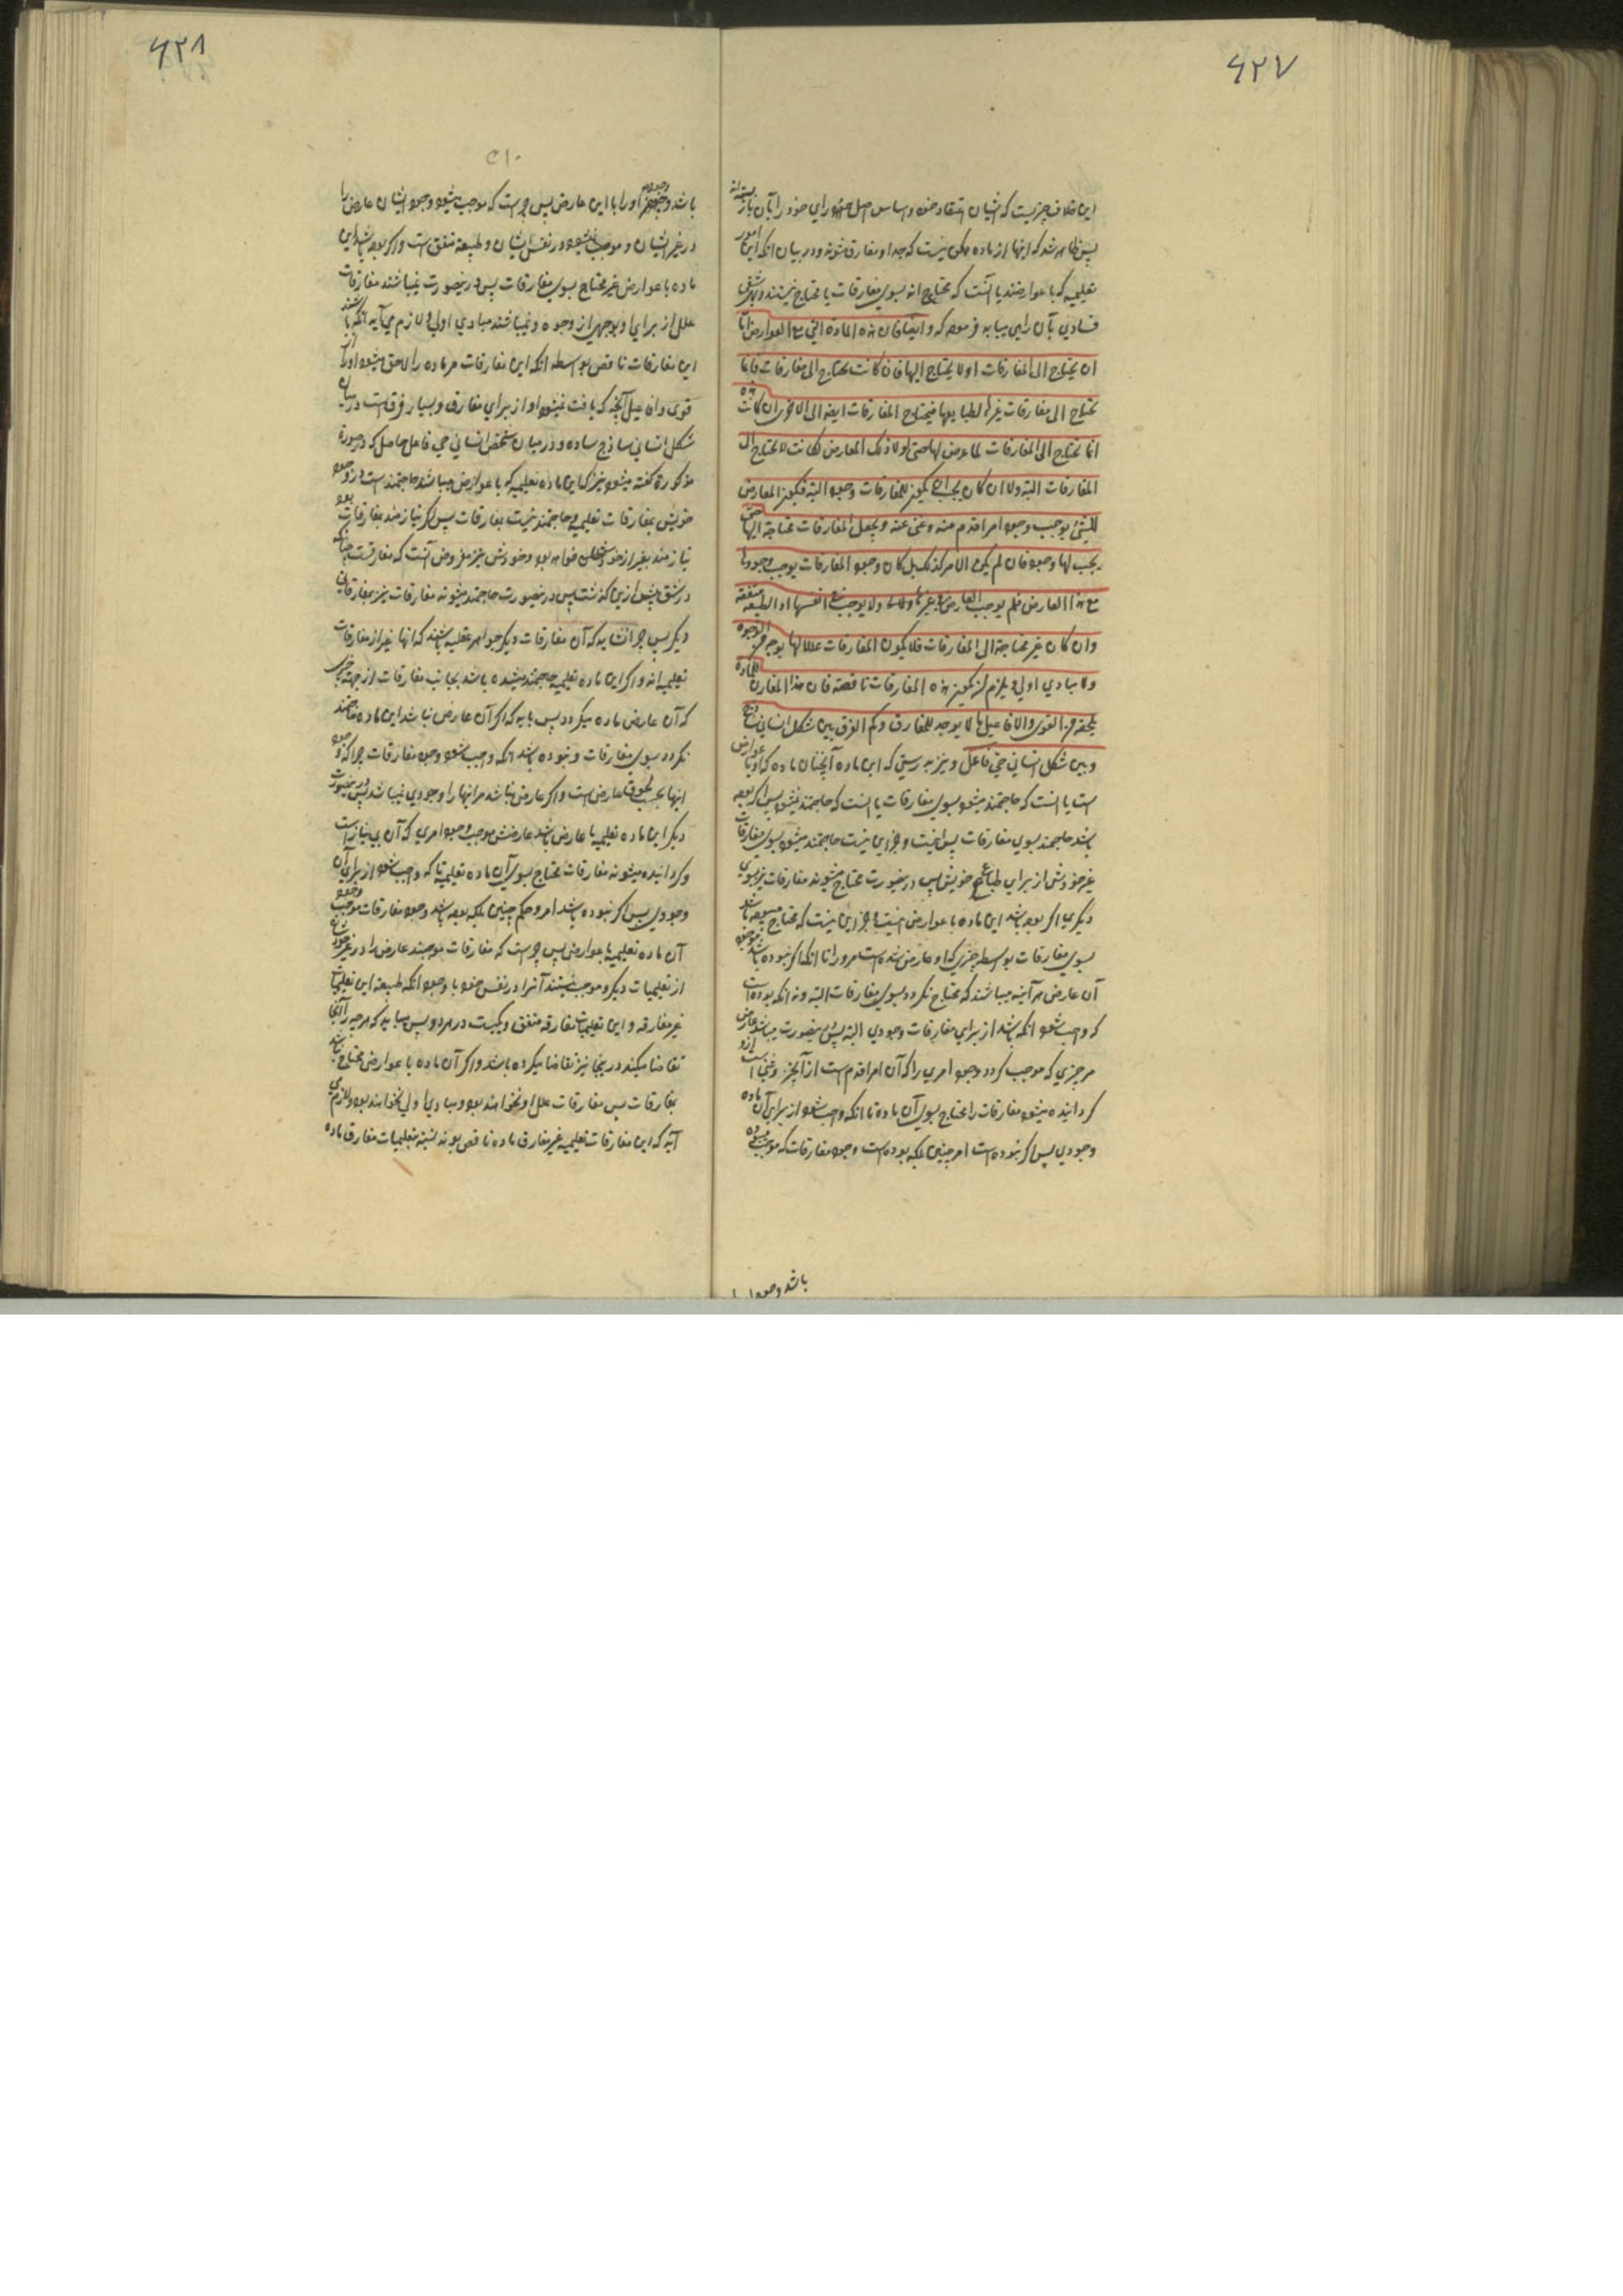 ۶۲۷
این خلاف چیزیست که ایشان اعتقاد خود و اساس اصل خود رای خود را بآن باز بسته‌اند
پس ظاهر شد که اینها از ماده ممکن نیست که جدا و مفارق شوند و در بیان انکه این امور
تعلیمیه که با عوارضند یا انست که محتاج اند بسوی مفارقات یا محتاج نیستند و بهر شقی
فسادی بآن راهی بیابد فرموده که وایضا فان هذه المادة التی مع العوارض اما
ان یحتاج الی المفارقات اولا یحتاج الیها فان کانت یحتاج الی مفارقات فانما
تحتاج الی مفارقات غیرها لطبایعها فیحتاج المفارقات ایضا الی اخری وان کانت هذه
انما تحتاج الی المفارقات لما عرض لها حتی لولا ذلک العارض لکانت لا یحتاج الی
المفارقات البته ولا ان کان یجب ان یکون للمفارقات وجود البته فیکون العارض
للشیء یوجب وجود امر اقدم منه وغنی عنه ویجعل المفارقات محتاجة الیها حتی
یجب لها وجود فان لم یکن الامر کذلک بل کان وجود المفارقات یوجب وجودها
مع هذا العارض فلم یوجب العارض فی غیرها ولا یوجب فی انفسها والطبیعة متفقة
وان کان غیر محتاجة الی المفارقات فلا یکون المفارقات عللا لها بوجه من الوجوه
ولا مبادی اولی ویلزم ان یکون هذه المفارقات ناقصة فان هذا المقارن للمادة
یلحقه من القوی والافاعیل ما لا یوجد للمفارق وکم الفرق بین شکل انسانی ساذج
وبین شکل انسانی حی فاعل و نیز بدرستی که این ماده آنچنان ماده که او با عوارض
است یا انست که حاجتمند میشود بسوی مفارقات یا انست که حاجتمند نیشود پس اگر بوده
باشد حاجتمند بسوی مفارقات پس انیست و جز این نیست حاجتمند میشود بسوی مفارقات
غیر خودش از برای طبایع خویش پس درینصورت محتاج میشوند مفارقات نیز بسوی
دیگری اگر بوده باشد این ماده با عوارض انیست و جز این نیست که محتاج میبوده باشد
بسوی مفارقات بواسطه چیزی که او عارض شده است مر او را تا انکه اگر نبوده باشد موجود
آن عارض هر آینه میباشند که محتاج نگردد بسوی مفارقات البته و نه انکه بوده است
که واجب شود انکه باشد از برای مفارقات وجودی البته پس درینصورت میباشد عارض
مر چیزی که موجب گردد وجود امری را که آن امر اقدم است از آنچیز و غنی است ازو
گردانیده میشود مفارقات را محتاج بسوی آن ماده تا انکه واجب شود از برای آن ماده
وجودی پس اگر نبوده است امر چنین بلکه بوده است وجود مفارقات که موجب میبوده
باشد وجود او را
۶۲۸
۵۱۰
باشد وجود او را با این عارض پس چراست که موجب میشود وجود ایشان عارض را
در غیر ایشان و موجب نمیشود در نفس ایشان و طبیعة متفق است و اگر بوده باشد این
ماده با عوارض غیر محتاج بسوی مفارقات پس درینصورت نمیباشند مفارقات
علل از برای او بوجهی از وجوه و نمیباشند مبادی اولی و لازم می آید انکه باشند
این مفارقات ناقص بواسطه انکه این مفارقات مر ماده را لاحق میشود او را از
قوی و افاعیل آنچه که یافت نمیشود او از برای مفارق و بسیار فرق است در میان
شکل انسانی ساذج ساده و در میان شخص انسانی حی فاعل حاصل که در صورة
مذکورة گفته میشود نیز که این ماده تعلیمیه که با عوارض میباشد حاجتمند است در وجود
خویش بمفارقات تعلیمی و حاجتمند نیست بمفارقات پس اگر نیازمند بمفارقات بود
نیازمند بغیر از خود خواهد بود و خودش نیز مفروض آنست که مفارقست چنانکه
در شق پیش ازین گذشت پس درینصورت حاجتمند میشوند مفارقات نیز بمفارقاتی
دیگر پس چرا نشاید که آن مفارقات دیگر جواهر عقلیه باشند که انها غیر از مفارقات
تعلیمی اند و اگر این ماده تعلیمیه حاجتمند میشده باشد بجانب مفارقات از جهة چیزی
که آن عارض ماده میگردد پس باید که اگر آن عارض نباشد این ماده حاجتمند
نگردد بسوی مفارقات و نبوده باشد انکه واجب شود وجود مفارقات چرا که وجود
انها بحسب لحوق عارض است و اگر عارض نباشد مر انها را وجودی نمیباشد پس درینصورت
دیگر این ماده تعلیمی با عارض باشد عارضش موجب وجود امری که آن بی نیاز است
و گردانیده میشوند مفارقات محتاج بسوی آن ماده تعلیمیه تا که واجب شود از برای آن
وجودی پس اگر نبوده باشد امر و حکم چنین بلکه بوده باشد وجود مفارقات موجب وجود
آن ماده تعلیمیه با عوارض پس چراست که مفارقات موجبند عارض را در غیر خودشان
از تعلیمیات دیگر و موجب نیستند آنرا در نفس خود با وجود انکه طبیعة این تعلیمیات
غیر مفارقه و این تعلیمیات مفارقه متفق و یکیست در هر دو پس میباید که هر چه را آنجا
تقاضا میکند درینجا نیز تقاضا میکرده باشد و اگر آن ماده با عوارض محتاج نباشد
بمفارقات پس مفارقات علل او نخواهند بود و مبادی اولی نخواهند بود و لازم می
آید که این مفارقات تعلیمیه غیر مفارق ماده ناقص بوند نسبة بتعلیمیات مفارق ماده